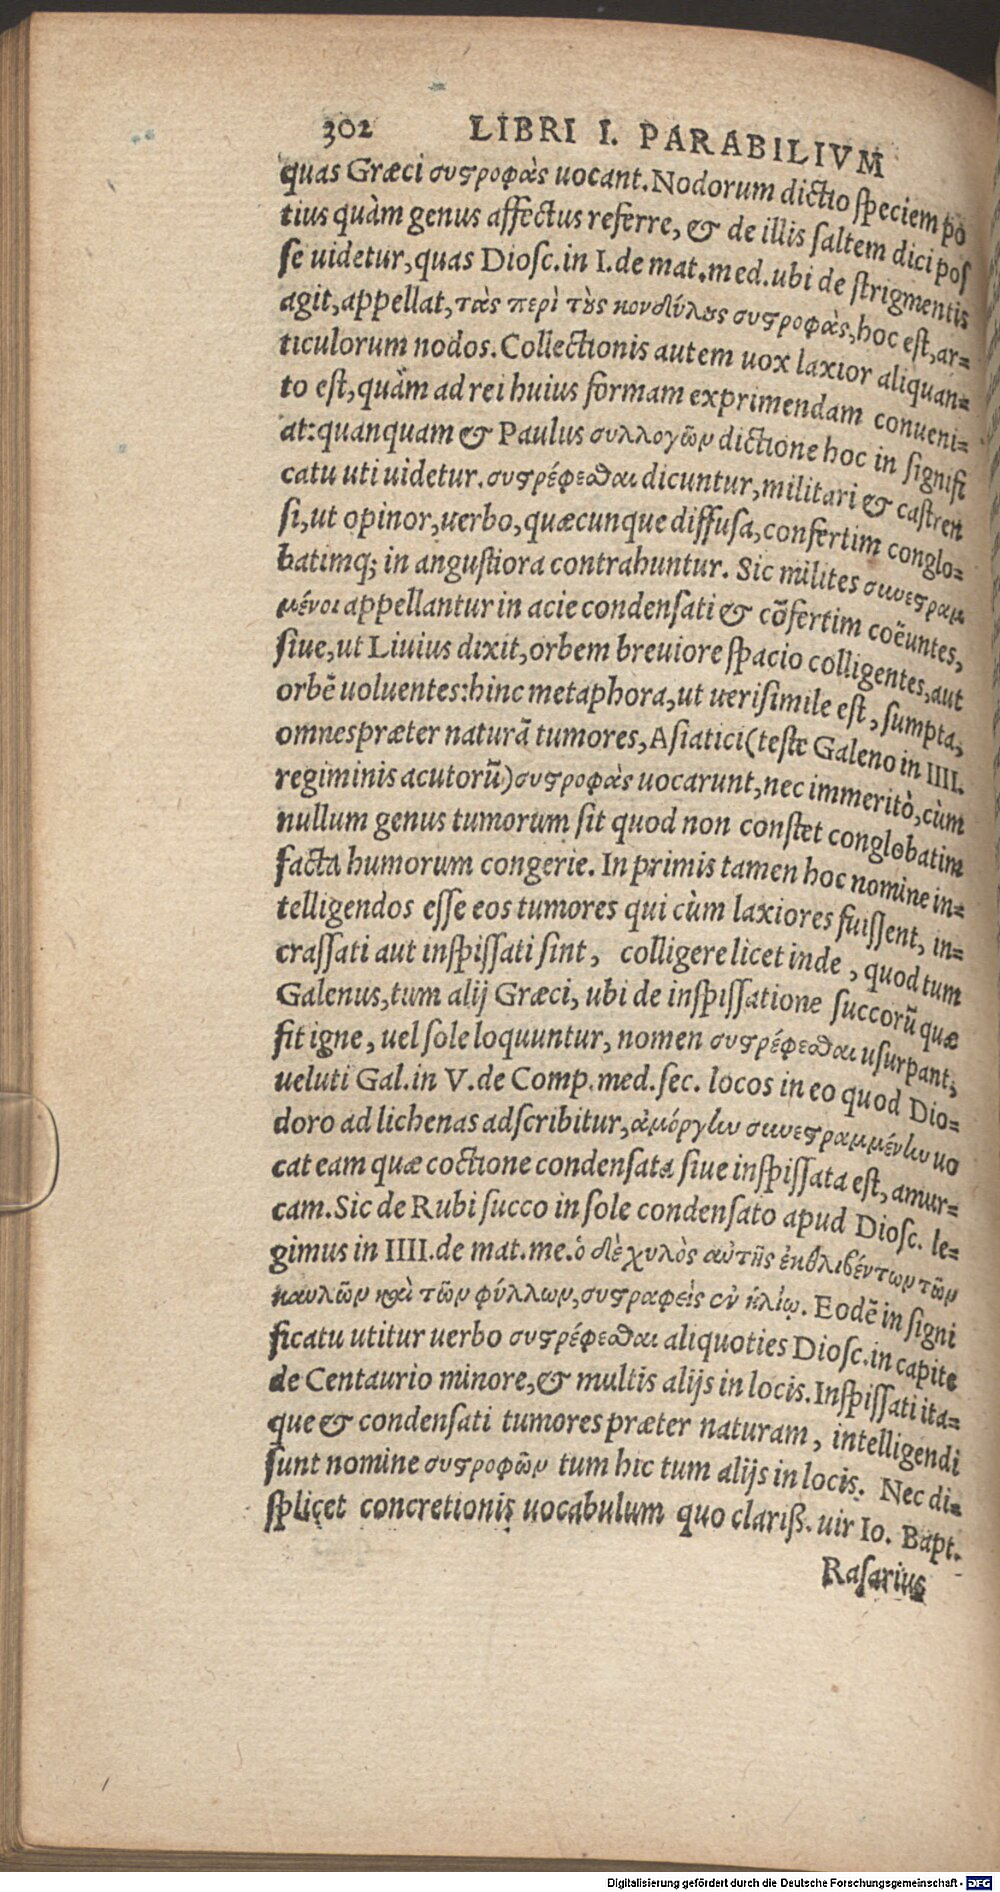 302 LIBRI I. PARABILIVM
quas Græci συςροφὰς uocant. Nodorum dictio speciem po
tius quàm genus affectus referre, & de illis saltem dici pos
se uidetur, quas Diosc. in I. de mat. med. ubi de strigmentis
agit, appellat, τὰς περὶ τȣ̀ς κονδύλȣς συςροφὰς, hoc est, ar=
ticulorum nodos. Collectionis autem uox laxior aliquan=
to est, quàm ad rei huius formam exprimendam conueni=
at: quanquam & Paulus συλλογῶν dictione hoc in signifi
catu uti uidetur. συςρέφεϑαι dicuntur, militari & castren
si, ut opinor, uerbo, quæcunque diffusa, confertim conglo=
batimq; in angustiora contrahuntur. Sic milites συνεςραμ
μένοι appellantur in acie condensati & cõfertim coëuntes,
siue, ut Liuius dixit, orbem breuiore spacio colligentes, aut
orbẽ uoluentes: hinc metaphora, ut uerisimile est, sumpta,
omnes præter naturã tumores, Asiatici (teste Galeno in IIII.
regiminis acutorũ) συςροφὰς uocarunt, nec immeritò, cùm
nullum genus tumorum sit quod non constet conglobatim
facta humorum congerie. In primis tamen hoc nomine in=
telligendos esse eos tumores qui cùm laxiores fuissent, in=
crassati aut inspissati sint, colligere licet inde, quod tum
Galenus, tum alij Græci, ubi de inspissatione succorũ quæ
fit igne, uel sole loquuntur, nomen συςρέφεϑαι usurpant,
ueluti Gal. in V. de Comp. med. sec. locos in eo quod Dio=
doro ad lichenas adscribitur, ἀμόργην συνεςραμμένην uo
cat eam quæ coctione condensata siue inspissata est, amur=
cam. Sic de Rubi succo in sole condensato apud Diosc. le=
gimus in IIII. de mat. me. ὁ δὲ χυλὸς αὐτῆς ἐκθλιβέντων τῶν
καυλῶν καὶ τῶν φύλλων, συςραφεὶς ἐν ἡλίῳ. Eodẽ in signi
ficatu utitur uerbo συςρέφεϑαι aliquoties Diosc. in capite
de Centaurio minore, & multis alijs in locis. Inspissati ita=
que & condensati tumores præter naturam, intelligendi
sunt nomine συςροφῶν tum hic tum alijs in locis. Nec di=
splicet concretionis uocabulum quo clariß. uir Io. Bapt.
Rasarius
Digitalisierung gefördert durch die Deutsche Forschungsgemeinschaft - DFG